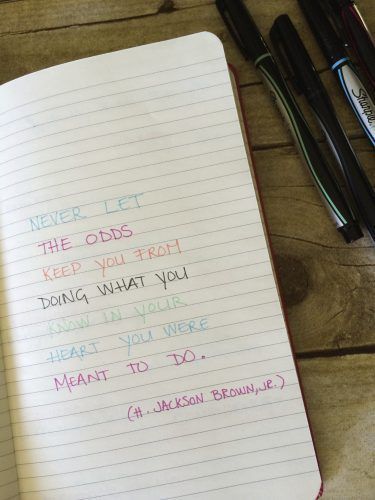 NEVER LET
THE ODDS
KEEP YOU FROM
DOING WHAT YOU
KNOW IN YOUR
HEART YOU WERE
MEANT TO DO.
(H. JACKSON BROWN, JR.)
Sharpie